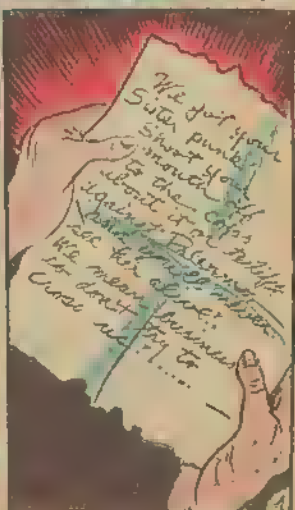 We got your
Sister punk!
Shoot your
mouth off
to the cops
about it or testify
against
and you'll never
see her alive!
We mean business
so don't try to
Cross us.....